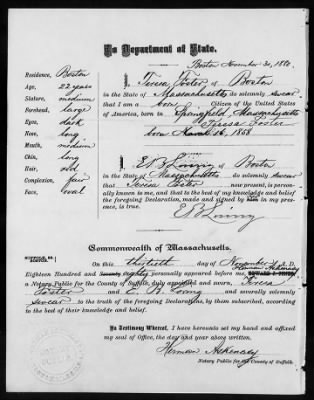 To Department of State.
Boston November 30, 1880.
Residence, Boston
Age, 22 years
Stature, medium
Forehead, large
Eyes, dark
Nose, long
Mouth, medium
Chin, long
Hair,
Complexion, fair
Face, oval
I, Teresa Foster of Boston
in the State of Massachusetts do solemnly swear
that I am a born Citizen of the United States
of America, born in Springfield, Massachusetts
Teresa Foster
born March 16, 1858
I, E B Loring of Boston
in the State of Massachusetts do solemnly swear
that Teresa Foster now present, is personally
known to me, and that to the best of my knowledge and belief
the foregoing Declaration, made and signed by her in my presence,
is true.
E B Loring
Commonwealth of Massachusetts.
SUFFOLK, SS.
BOSTON.
On this thirtieth day of November A. D.
Eighteen Hundred and Seventy eighty personally appeared before me, Herman Askenasy
a Notary Public for the County of Suffolk, duly appointed and sworn, Teresa
Foster and E. B. Loring and severally solemnly
swear to the truth of the foregoing Declarations, by them subscribed, according
to the best of their knowledge and belief.
In Testimony Whereof, I have hereunto set my hand and affixed
my seal of Office, the day and year above written.
Herman Askenasy
Notary Public for the County of Suffolk.